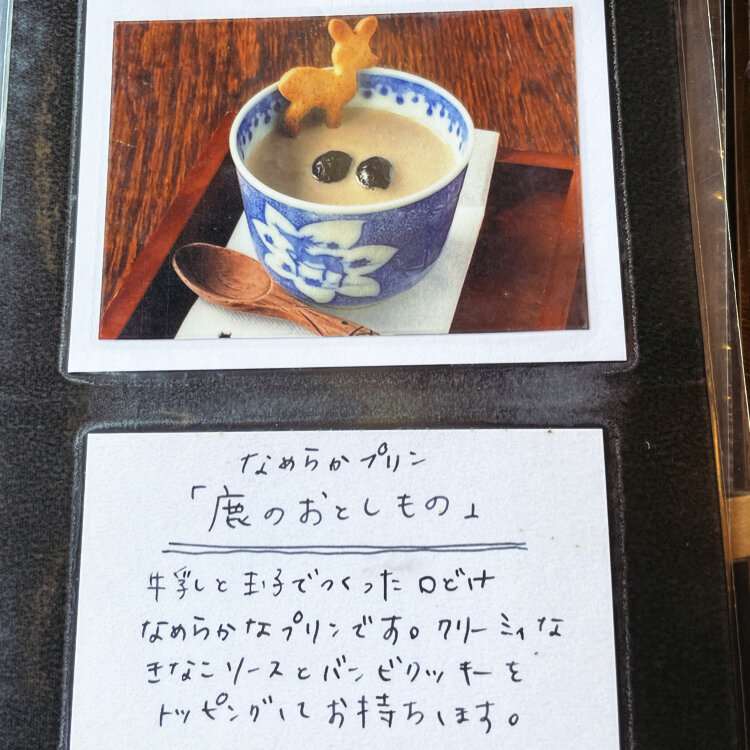 なめらかプリン
「鹿のおとしもの」
牛乳と玉子でつくった口どけ
なめらかなプリンです。クリーミィな
きなこソースとバンビクッキーを
トッピングしてお持ちします。